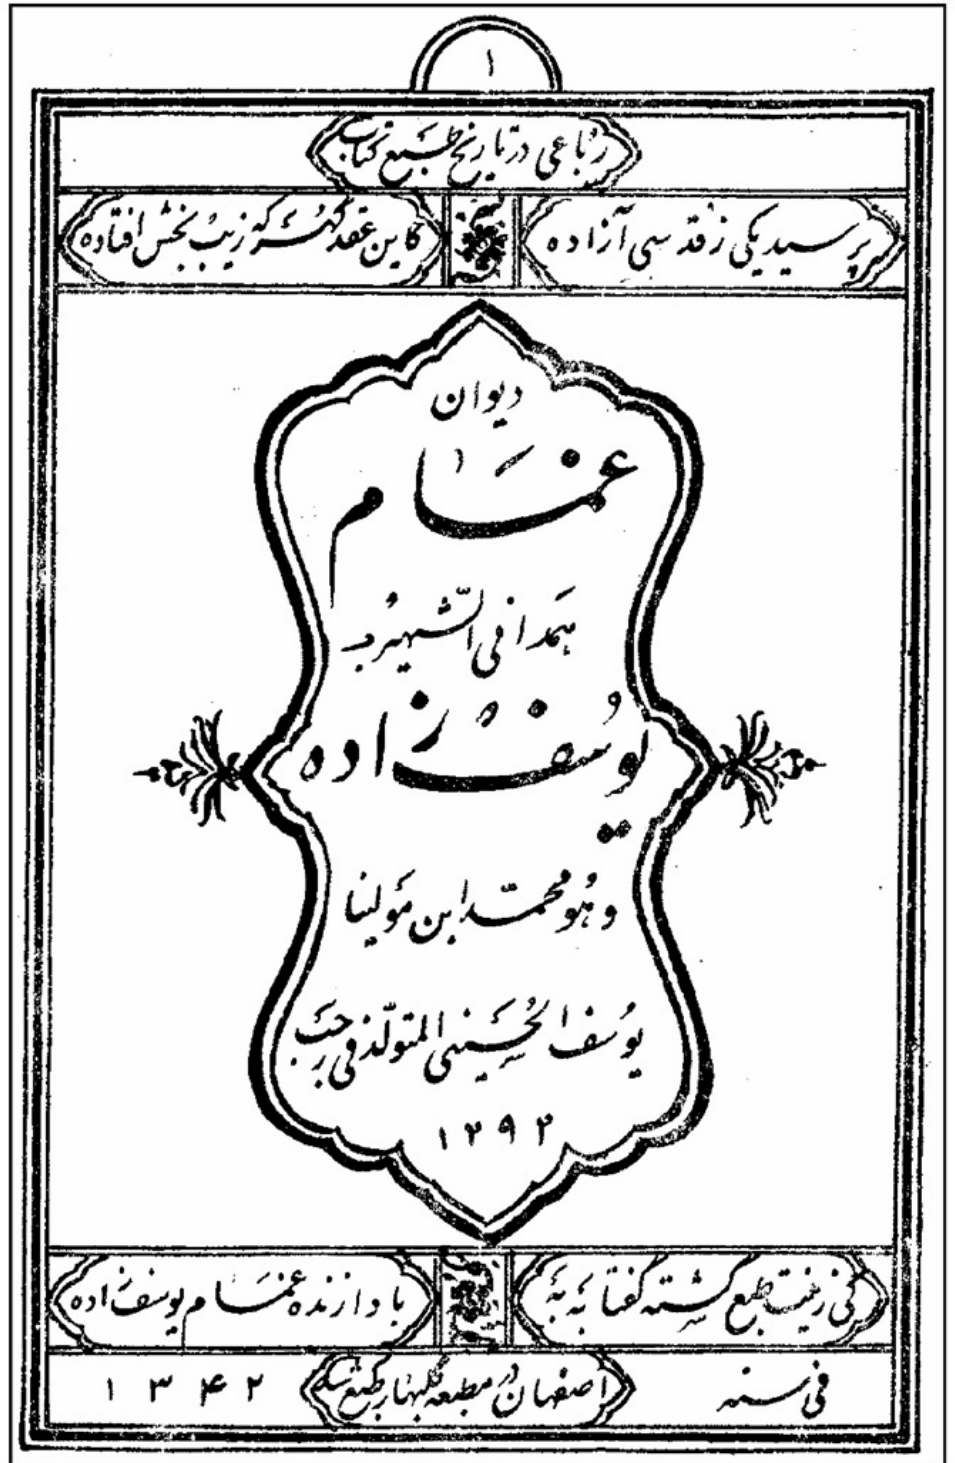 ۱
رباعی در تاریخ طبع کتاب
پرسید یکی ز قدسی آزاده
کاین عقد گهر که زیب بخش افتاده
دیوان
غمام
همدانی الشهیر بـ
یوسف زاده
وهو محمد ابن مولینا
یوسف الحسینی المتولد فی رجب
۱۲۹۲
کی زینت طبع گشته گفتا به به
بادا زنده غمام یوسف زاده
فی سنه
اصفهان در مطبعه گلبهار طبع شد
۱۳۴۲